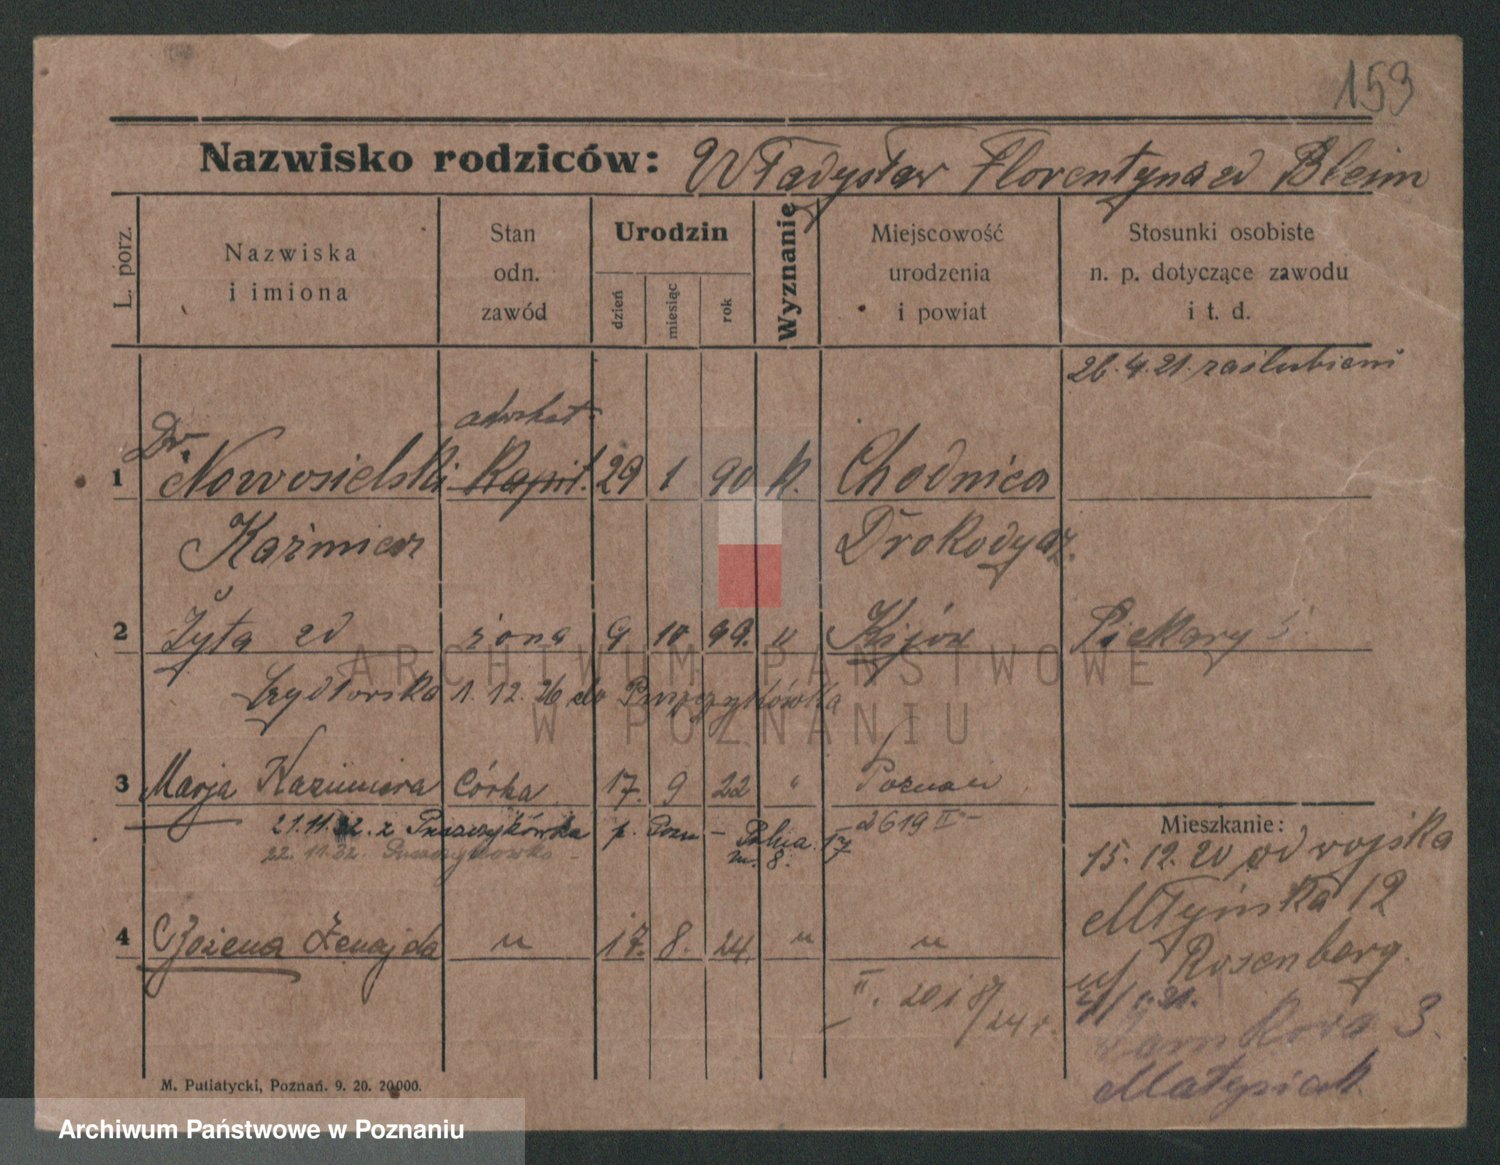 159
Nazwisko rodziców: Władysław Florentyna zd Bleim
L. porz.
Nazwiska i imiona
Stan odn. zawód
Urodzin
dzień
miesiąc
rok
Wyznanie
Miejscowość urodzenia i powiat
Stosunki osobiste n. p. dotyczące zawodu i t. d.
26.4.21. zaślubieni
Dr. adwokat
1 Nowosielski Kapit. 29 1 90 k. Chodnica
Kaźmierz Drohobycz.
2 Zyta zd żona 9 10 99. " Kijów Piekary
Szydłowska 1.12.26 do Puszczykówka
3 Marja Kazimiera Córka 17. 9 22 " Poznań
21.11.32. z Puszczykówka p. Pozn - 17 2619 II -
m. 8.
22.11.32. Puszczykówko -
Mieszkanie:
15.12.20 od wojska
Młyńska 12
4 Bożena Zenajda " 17. 8. 24. " "
Rosenberg.
II. 201 8/24 r.
1.21.
3.
Matysiak.
M. Putiatycki, Poznań. 9. 20. 20000.
ARCHIWUM PAŃSTWOWE
W POZNANIU
Archiwum Państwowe w Poznaniu